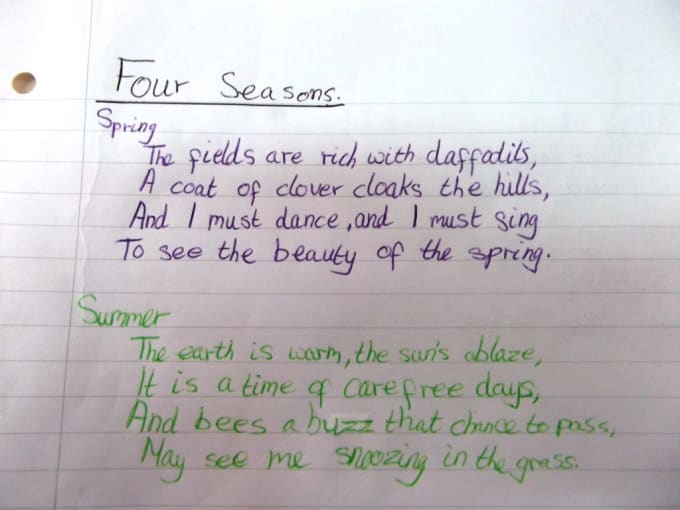 Four Seasons.
Spring
The fields are rich with daffodils,
A coat of clover cloaks the hills,
And I must dance, and I must sing
To see the beauty of the spring.
Summer
The earth is warm, the sun's ablaze,
It is a time of carefree days,
And bees abuzz that chance to pass,
May see me snoozing in the grass.